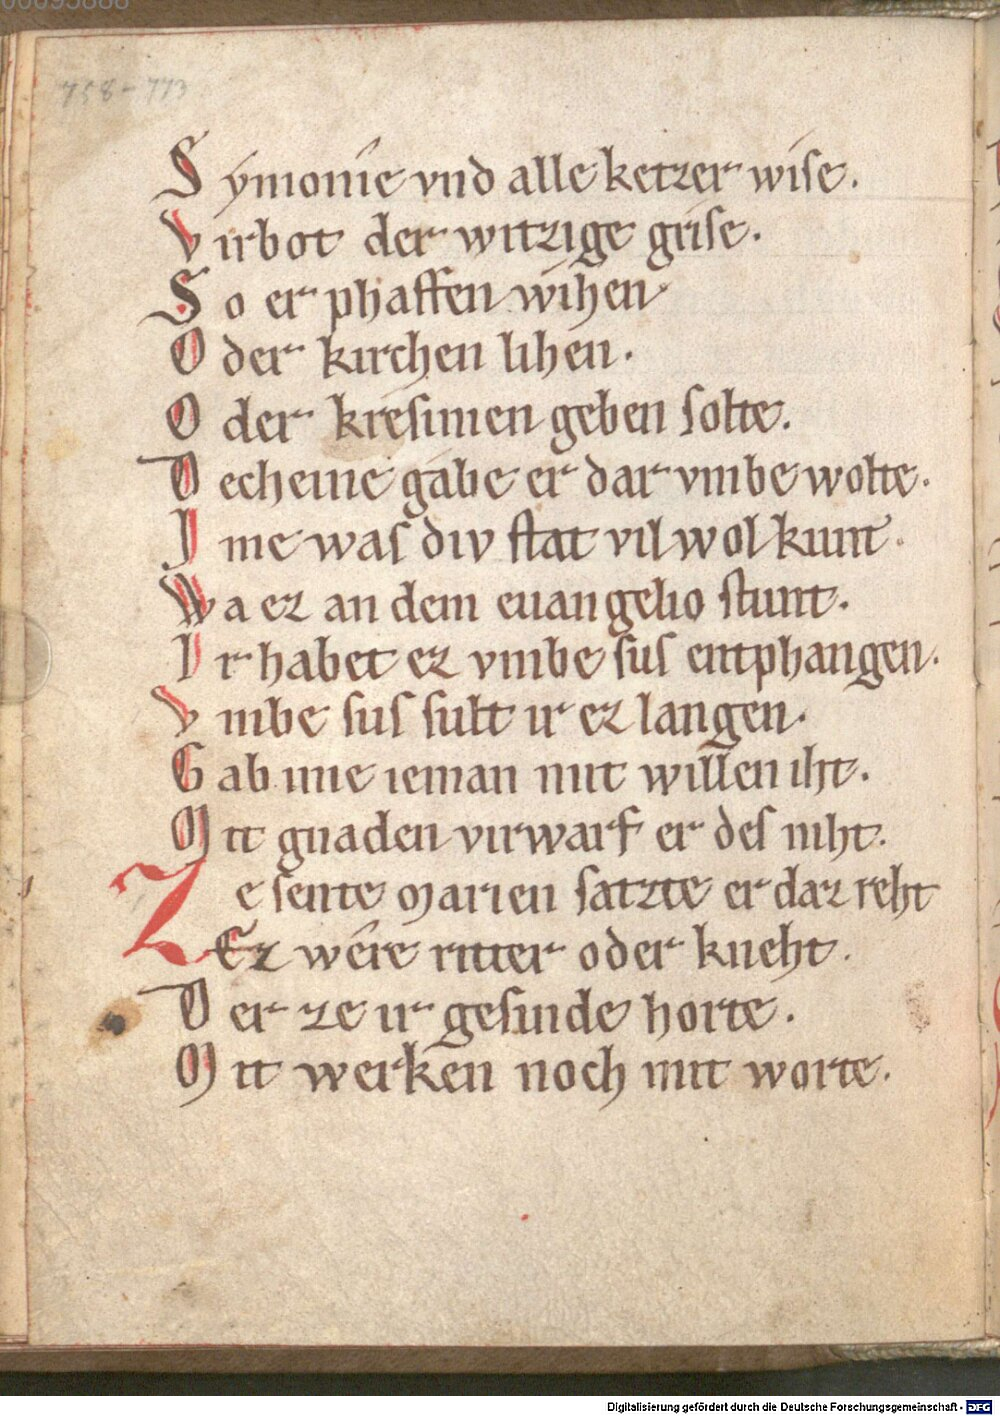 00095888
758-773
Symonie vnd alle ketzer wise.
Virbot der witzige grise.
So er phaffen wihen
Oder kirchen lihen.
Oder kresimen geben solte.
Decheine gabe er dar vmbe wolte.
Ime was div stat vil wol kunt.
Wa ez an dem euangelio stunt.
Ir habet ez vmbe sus entphangen.
Vmbe sus sult ir ez langen.
Gab ime ieman mit willen iht.
Mit gnaden virwarf er des niht.
Ze sente Marien satzte er daz reht
Ez were ritter oder kneht.
Der ze ir gesinde horte.
Mit werken noch mit worte.
Digitalisierung gefördert durch die Deutsche Forschungsgemeinschaft - DFG